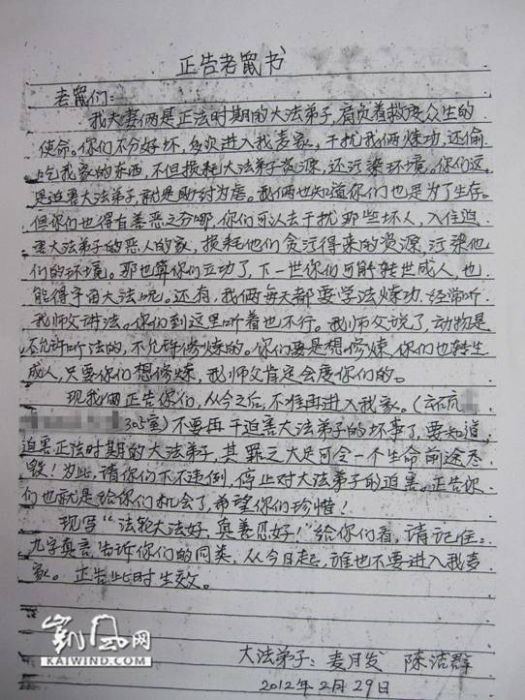 正告老鼠书
老鼠们：
我夫妻俩是正法时期的大法弟子，肩负着救度众生的
使命。你们不分好坏，多次进入我麦家，干扰我俩炼功，还偷
吃我家的东西，不但损耗大法弟子资源，还污染环境。你们这
是迫害大法弟子，就是助纣为虐。我俩也知道你们也是为了生存。
但你们也得有善恶之分哪，你们可以去干扰那些坏人，入住迫
害大法弟子的恶人的家，损耗他们贪污得来的资源，污染他
们的环境。那也算你们立功了，下一世你们可能转世成人，也
能得宇宙大法呢。还有，我俩每天都要学法炼功，经常听
我师父讲法。你们到这里听着也不行。我师父说了，动物是
不允许听法的，不允许修炼的。你们要是想修炼，你们也转生
成人，只要你们想修炼，我师父肯定会度你们的。
现我俩正告你们，从今之后，不准再进入我家。（
305室）不要再干迫害大法弟子的坏事了，要知道，
迫害正法时期的大法弟子，其罪之大足可令一个生命前途尽
毁！为此，请你们下不违例，停止对大法弟子的迫害。正告你
们也就是给你们机会了，希望你们珍惜！
现写“法轮大法好，真善忍好！”给你们看，请记准：
九字真言，告诉你们的同类，从今日起，谁也不要进入我麦
家。正告此时生效。
大法弟子：麦月发 陈洁群
2012年2月29日
凯风网
KAIWIND.COM